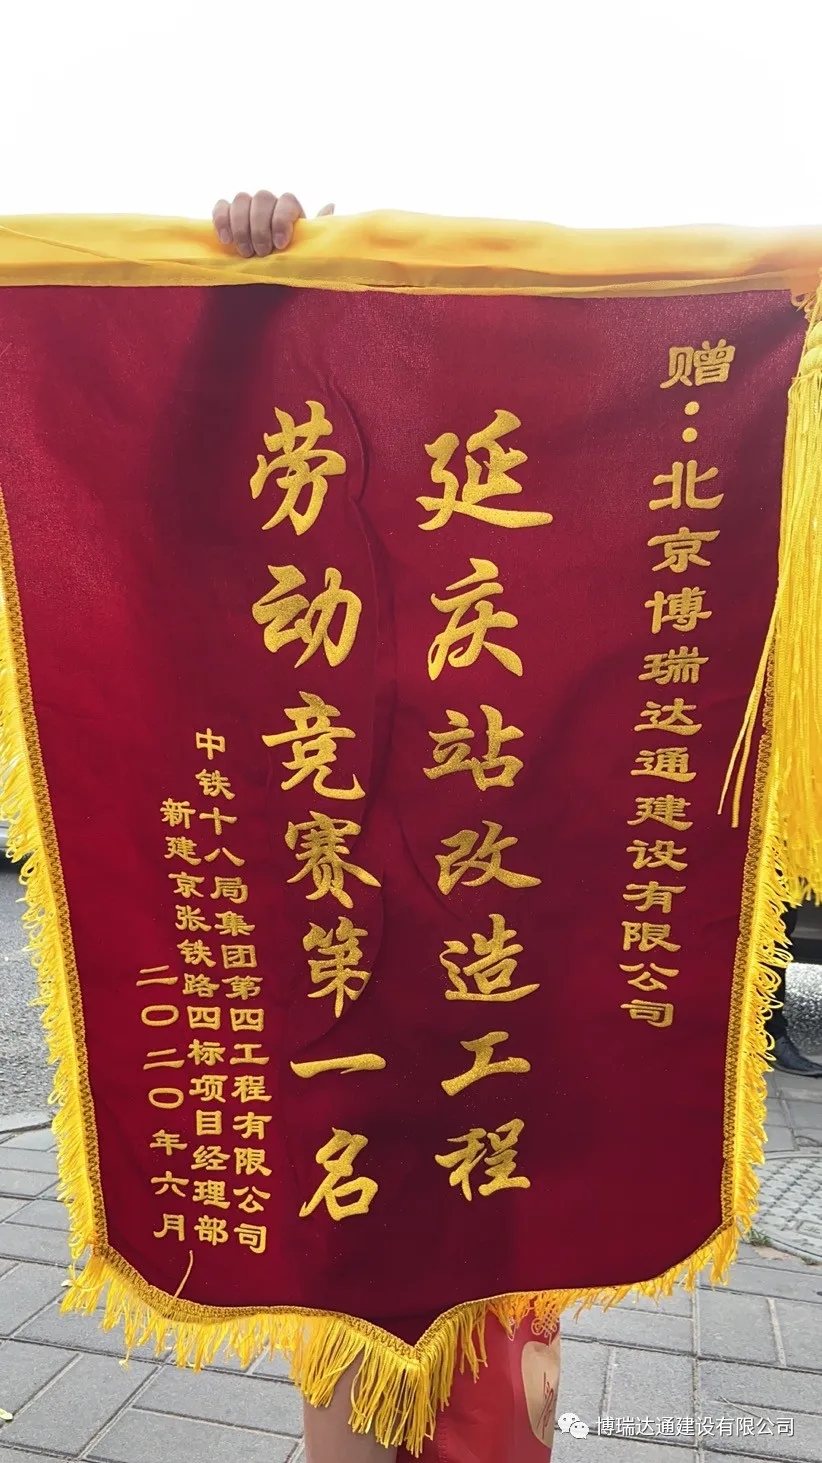 赠:北京博瑞达通建设有限公司
延庆站改造工程
劳动竞赛第一名
中铁十八局集团第四工程有限公司
新建京张铁路四标项目经理部
二〇二〇年六月
博瑞达通建设有限公司